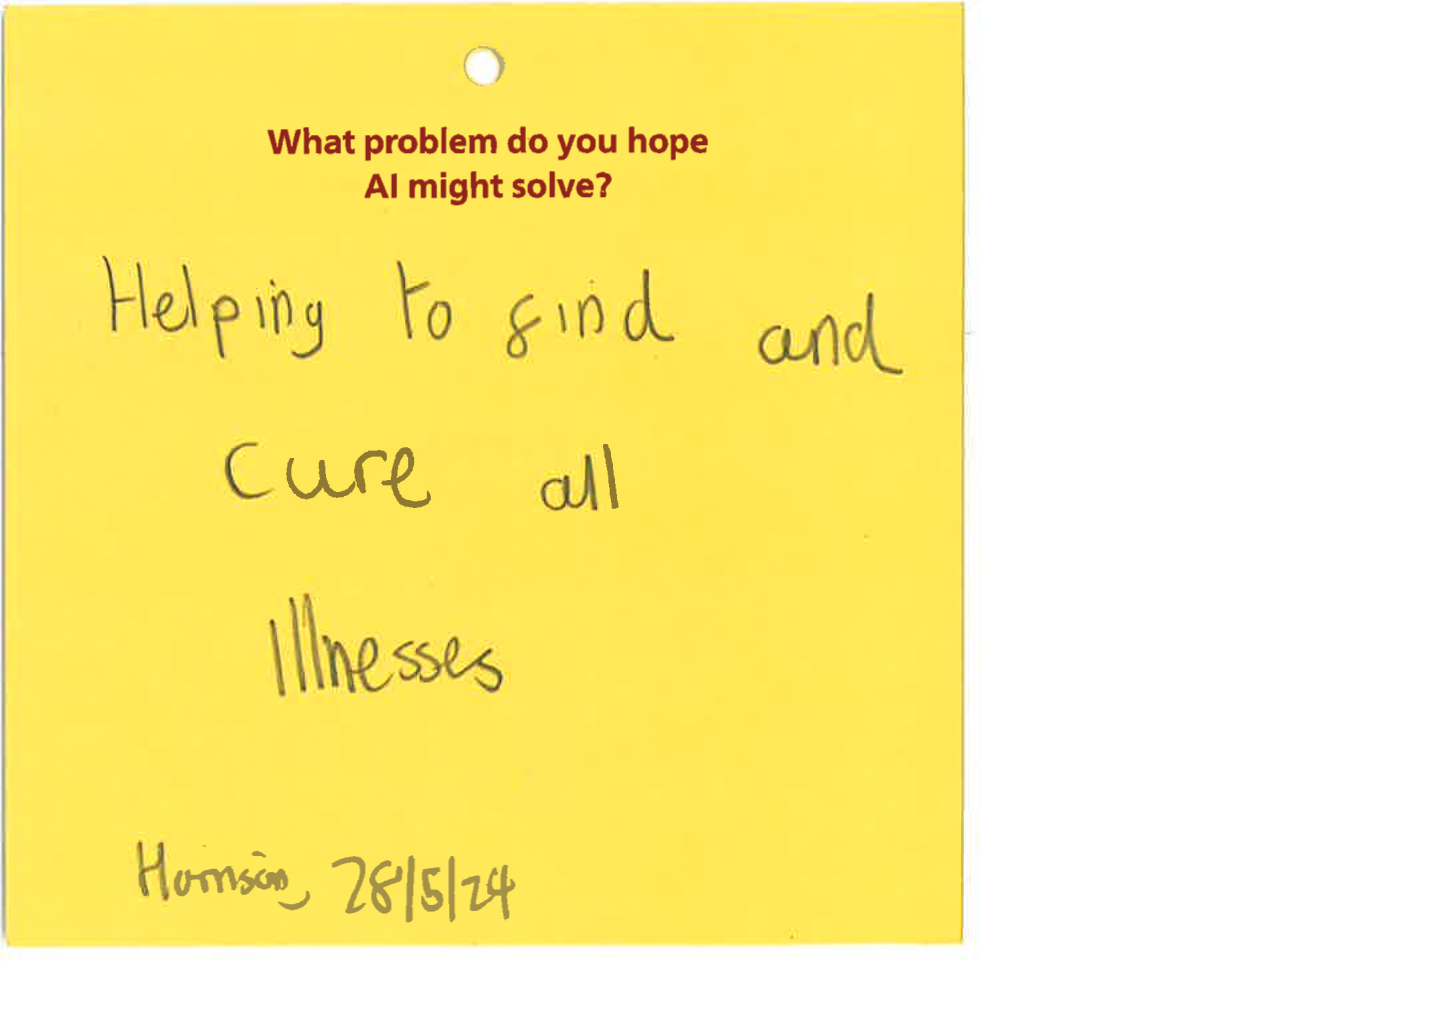 What problem do you hope
AI might solve?
Helping to find and
Cure all
Illnesses
Harrison, 28/5/24